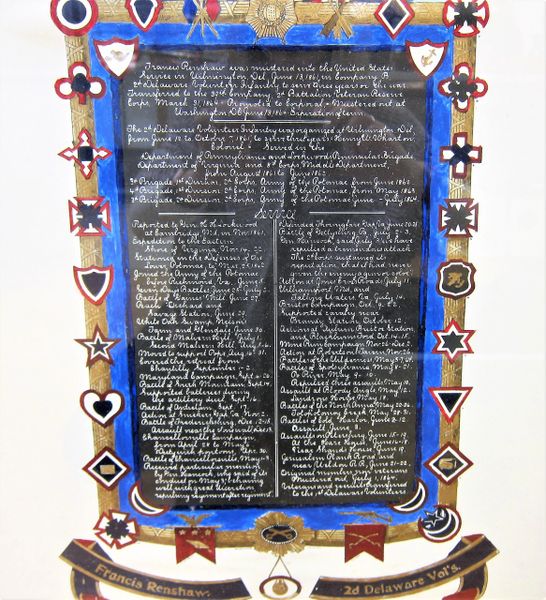 Francis Renshaw was mustered into the United States
Service in Wilmington, Del. June 13, 1861, in Company B
2nd Delaware Volunteer Infantry to serve three years or the war
Transferred to the Company, 2d Battalion Veteran Reserve
Corps, March 31, 1864 Promoted to Corporal Mustered out at
Washington
The 2nd Delaware Volunteer Infantry was organized at Wilmington Del.
from June 12 to October 7, 1861, to serve three years. Henry W. Wharton
Colonel Served in the
Department of Pennsylvania and Lockwood's Peninsular Brigade
Department of Virginia and 8th Corps Middle Department,
from August 1861 to June 1862
3d Brigade 1st Division, 2d Corps, Army of the Potomac from June 1862
4th Brigade 1st Division, 2d Corps, Army of the Potomac from May 1863
3d Brigade 2d Corps, Army of the Potomac June - July 1864
Service
Reported to Gen. H. H. Lockwood
at Cambridge Md. Nov. 1861
Expedition to the Eastern
Shore of Virginia, Nov. 14-22
Stationed in the Defences of the
Lower Potomac, to May 25, 1862
Joined the Army of the Potomac
before Richmond Va. June 5
Seven Days Battles June 25-July 1
Battle of Gaines' Mill June 27
Peach Orchard and
Savage Station, June 29
White Oak Swamp, Nelson's
Farm and Glendale, June 30
Battle of Malvern Hill, July 1
Second Malvern Hill, Aug. 5-6
Moved to support Pope, Aug. 16-31
Covered the retreat from
Chantilly, September 1-2
Maryland Campaign, Sept. 6-26
Battle of South Mountain, Sept. 14
Supported batteries during
the artillery duel, Sept. 16
Battle of Antietam, Sept. 17
Action at Snickers Gap, Va. Nov. 2
Battle of Fredericksburg, Dec. 12-15
Assault near the Sunken road
Chancellorsville Campaign
from April 28 to May 6
Battle of Chancellorsville May 1-4
Received particular mention
by Gen. Hancock, who said of its
conduct on May 3; behaving
well with great
repulsing regiment after regiment
Defended Thoroughfare Gap, Va. June 20-25
Battle of Gettysburg Pa. July 2-3
Gen. Hancock said July 3 We have
repulsed a tremendous attack
The 2d Corps sustained its
reputation that it had never
given the enemy a gun or color
Action at Jones Cross Roads, July 11
Williamsport, Md. and
Falling Waters Va. July 14
Bristoe Campaign Oct. 9-22
Supported cavalry near
Brandy Station, October 12
Action at Auburn, Bristoe Station,
and Blackburn's Ford Oct. 14-15
Mine Run Campaign Nov. 26-Dec. 2
Action at Robertson's Tavern, Nov. 26
Battle of the Wilderness, May 5-7
Battle of Spotsylvania May 8-21
Po River May 9-10
Repulsed three assaults May 10
Assault at Bloody Angle, May 12
Landron House May 18
Battle of the North Anna May 22-26
Totopotomoy Creek May 28-31
Battle of Cold Harbor June 2-12
Assault June 3
Assault on Petersburg June 15-19
At the House, June
House, June 19
Jerusalem Plank Road and
near Weldon R.R. June 21-22
Original members, non veterans
Mustered out, July 1, 1864
Veterans and recruits transferred
to the 1st Delaware Volunteers
Francis Renshaw.
2d Delaware Vol's.